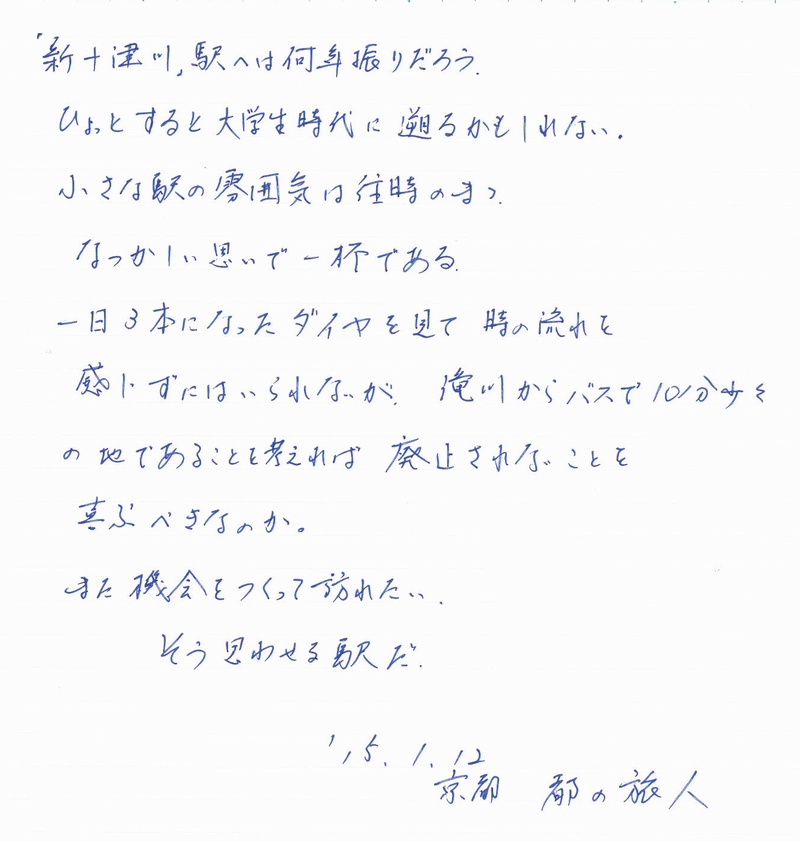 「新十津川」駅へは何年振りだろう.
ひょっとすると大学生時代に遡るかもしれない.
小さな駅の雰囲気は往時のまゝ.
なつかしい思いで一杯である.
一日3本になったダイヤを見て 時の流れを
感じずにはいられないが, 滝川からバスで10分少々
の地であることを考えれば 廃止されないことを
喜ぶべきなのか。
また機会をつくって訪れたい.
そう思わせる駅だ.
'15.1.12
京都 都の旅人